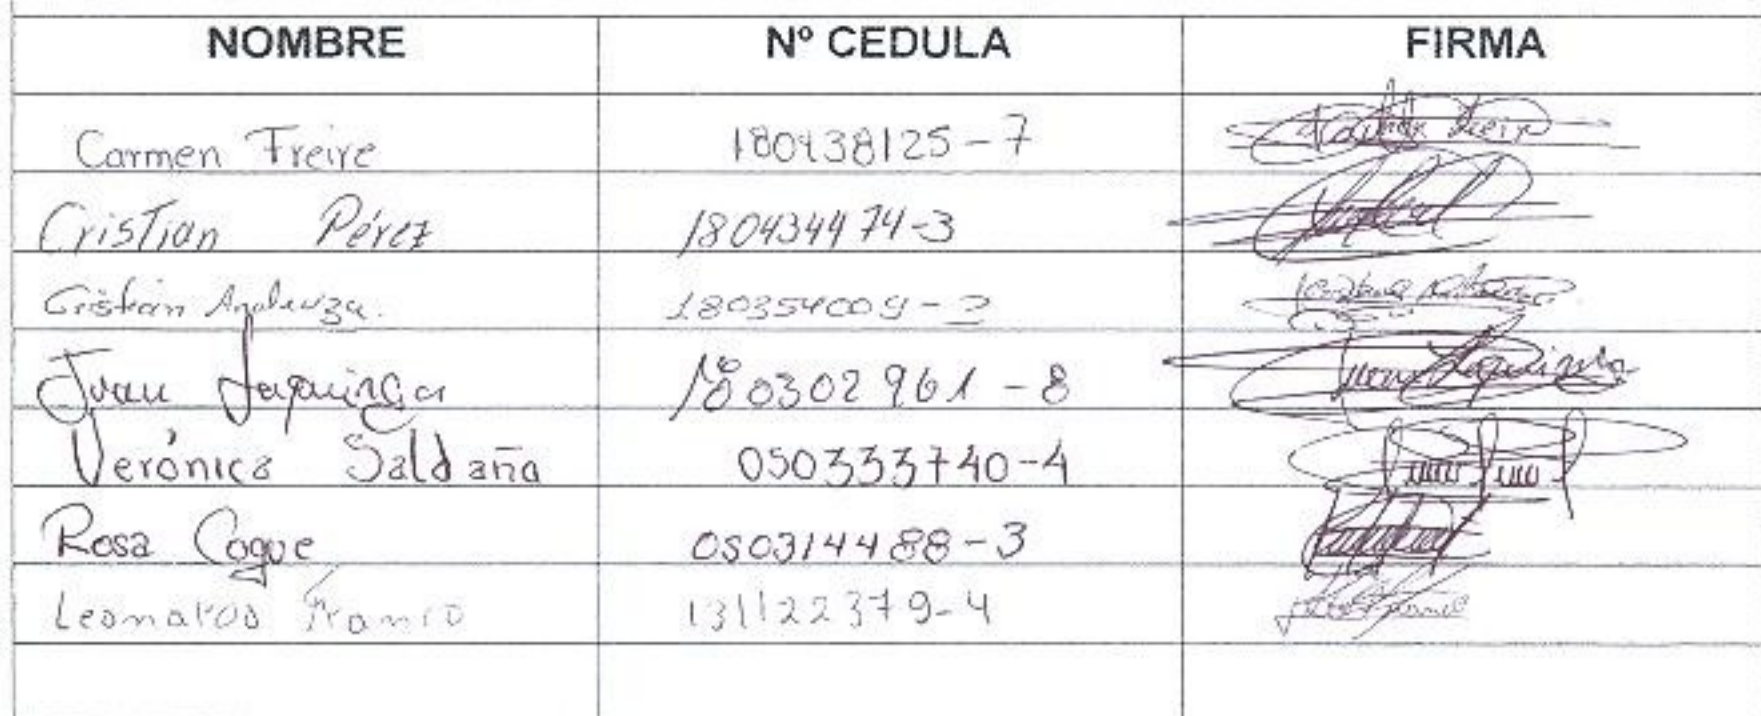 NOMBRE Nº CEDULA FIRMA
Carmen Freire 180438125-7
Cristian Pérez 180434474-3
Cristian 180354009-2
Juan 180302961-8
Verónica Saldaña 050333740-4
Rosa Coque 050314488-3
Leonardo Franco 131122379-4